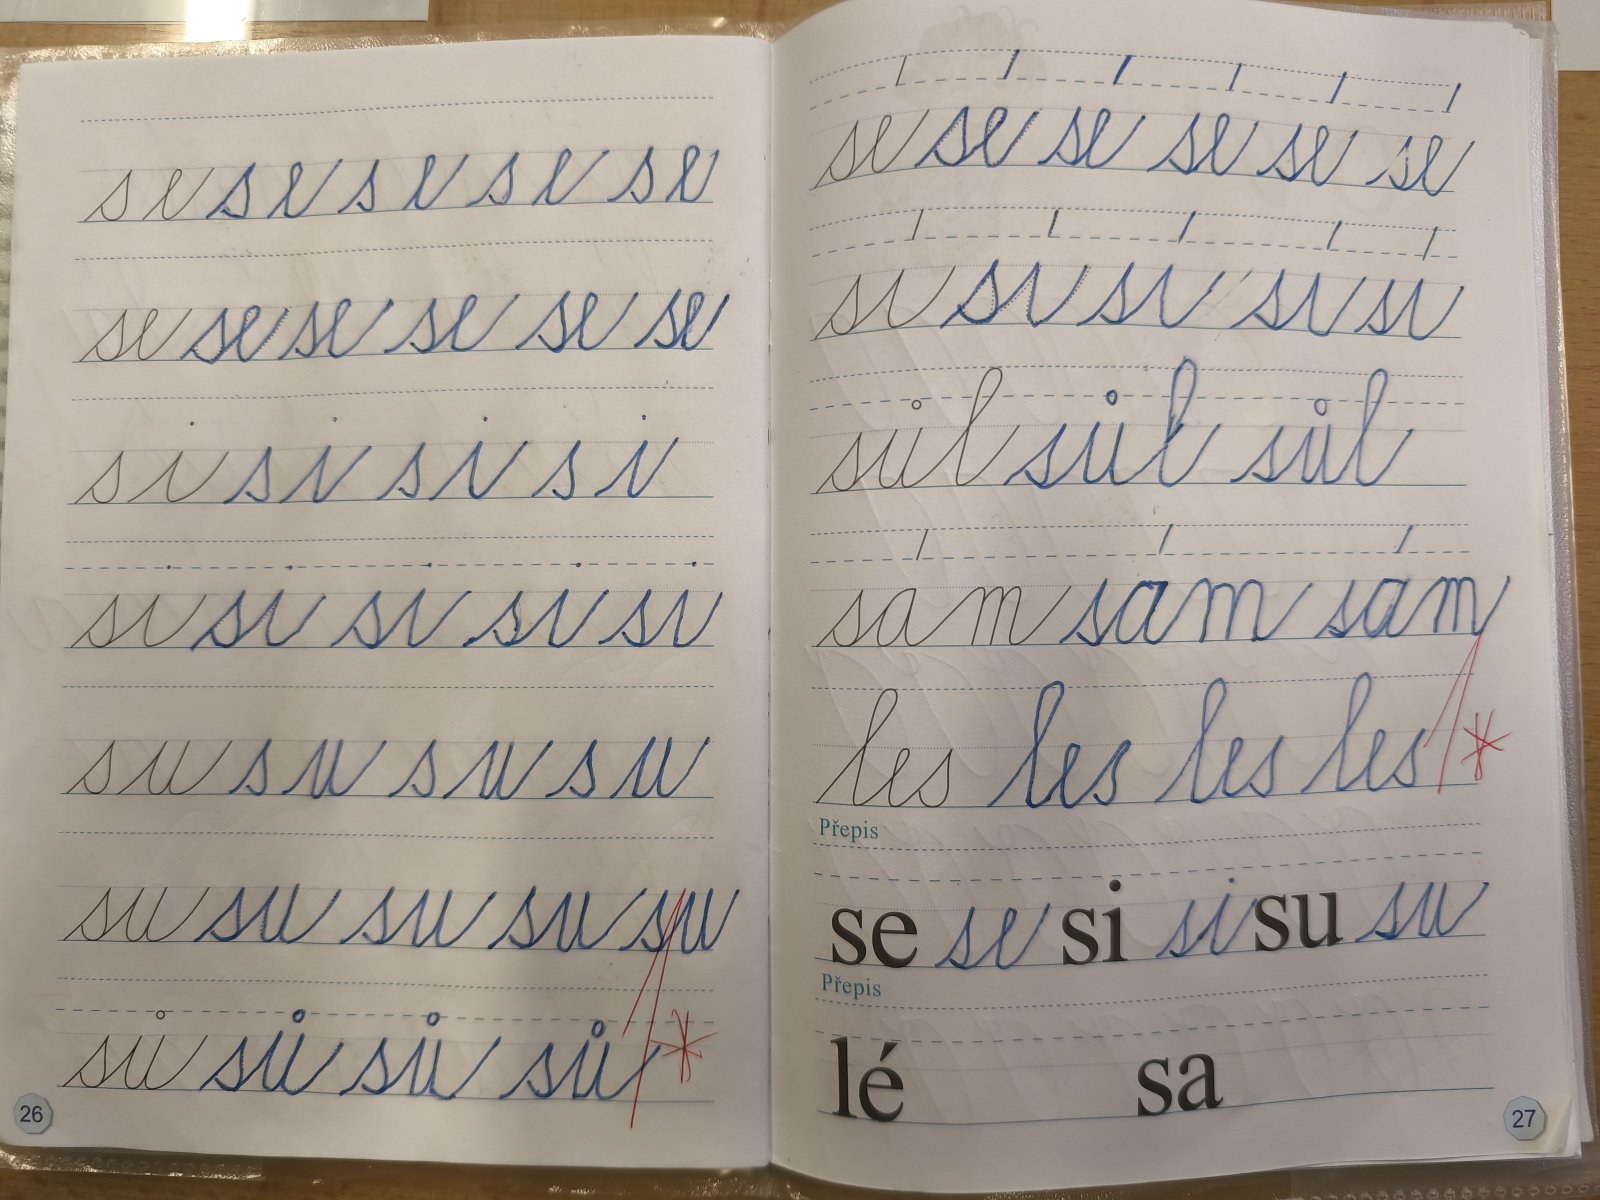 s e s e s e s e s e
se se se se se se
s i s i s i s i
si si si si si
s u s u s u s u
su su su su su
sů sů sů sů
26
sé sé sé sé sé sé
sí sí sí sí sí
sůl sůl sůl
sám sám sám
les les les les
Přepis
se se si si su su
Přepis
lé sa
27